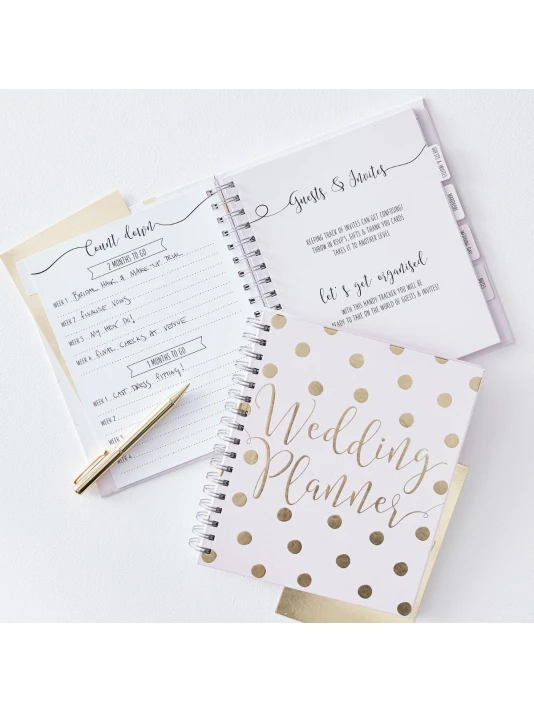 Count down
2 MONTHS TO GO
WEEK 1 BRIDAL HAIR & MAKE-UP TRIAL
WEEK 2 FINALISE VOWS
WEEK 3 MY HEN DO!
WEEK 4 FINAL CHECKS AT VENUE
1 MONTHS TO GO
WEEK 1 LAST DRESS FITTING!
WEEK 2
WEEK 3
WEEK 4
Guests & Invites
KEEPING TRACK OF INVITES CAN GET CONFUSING!
THROW IN RSVP'S, GIFTS & THANK YOU CARDS
TAKES IT TO ANOTHER LEVEL
let's get organised
WITH THIS HANDY TRACKER YOU WILL BE
READY TO TAKE ON THE WORLD OF GUESTS & INVITES!
GUESTS & INVITES
WEDDING DAY
NOTES
Wedding
Planner